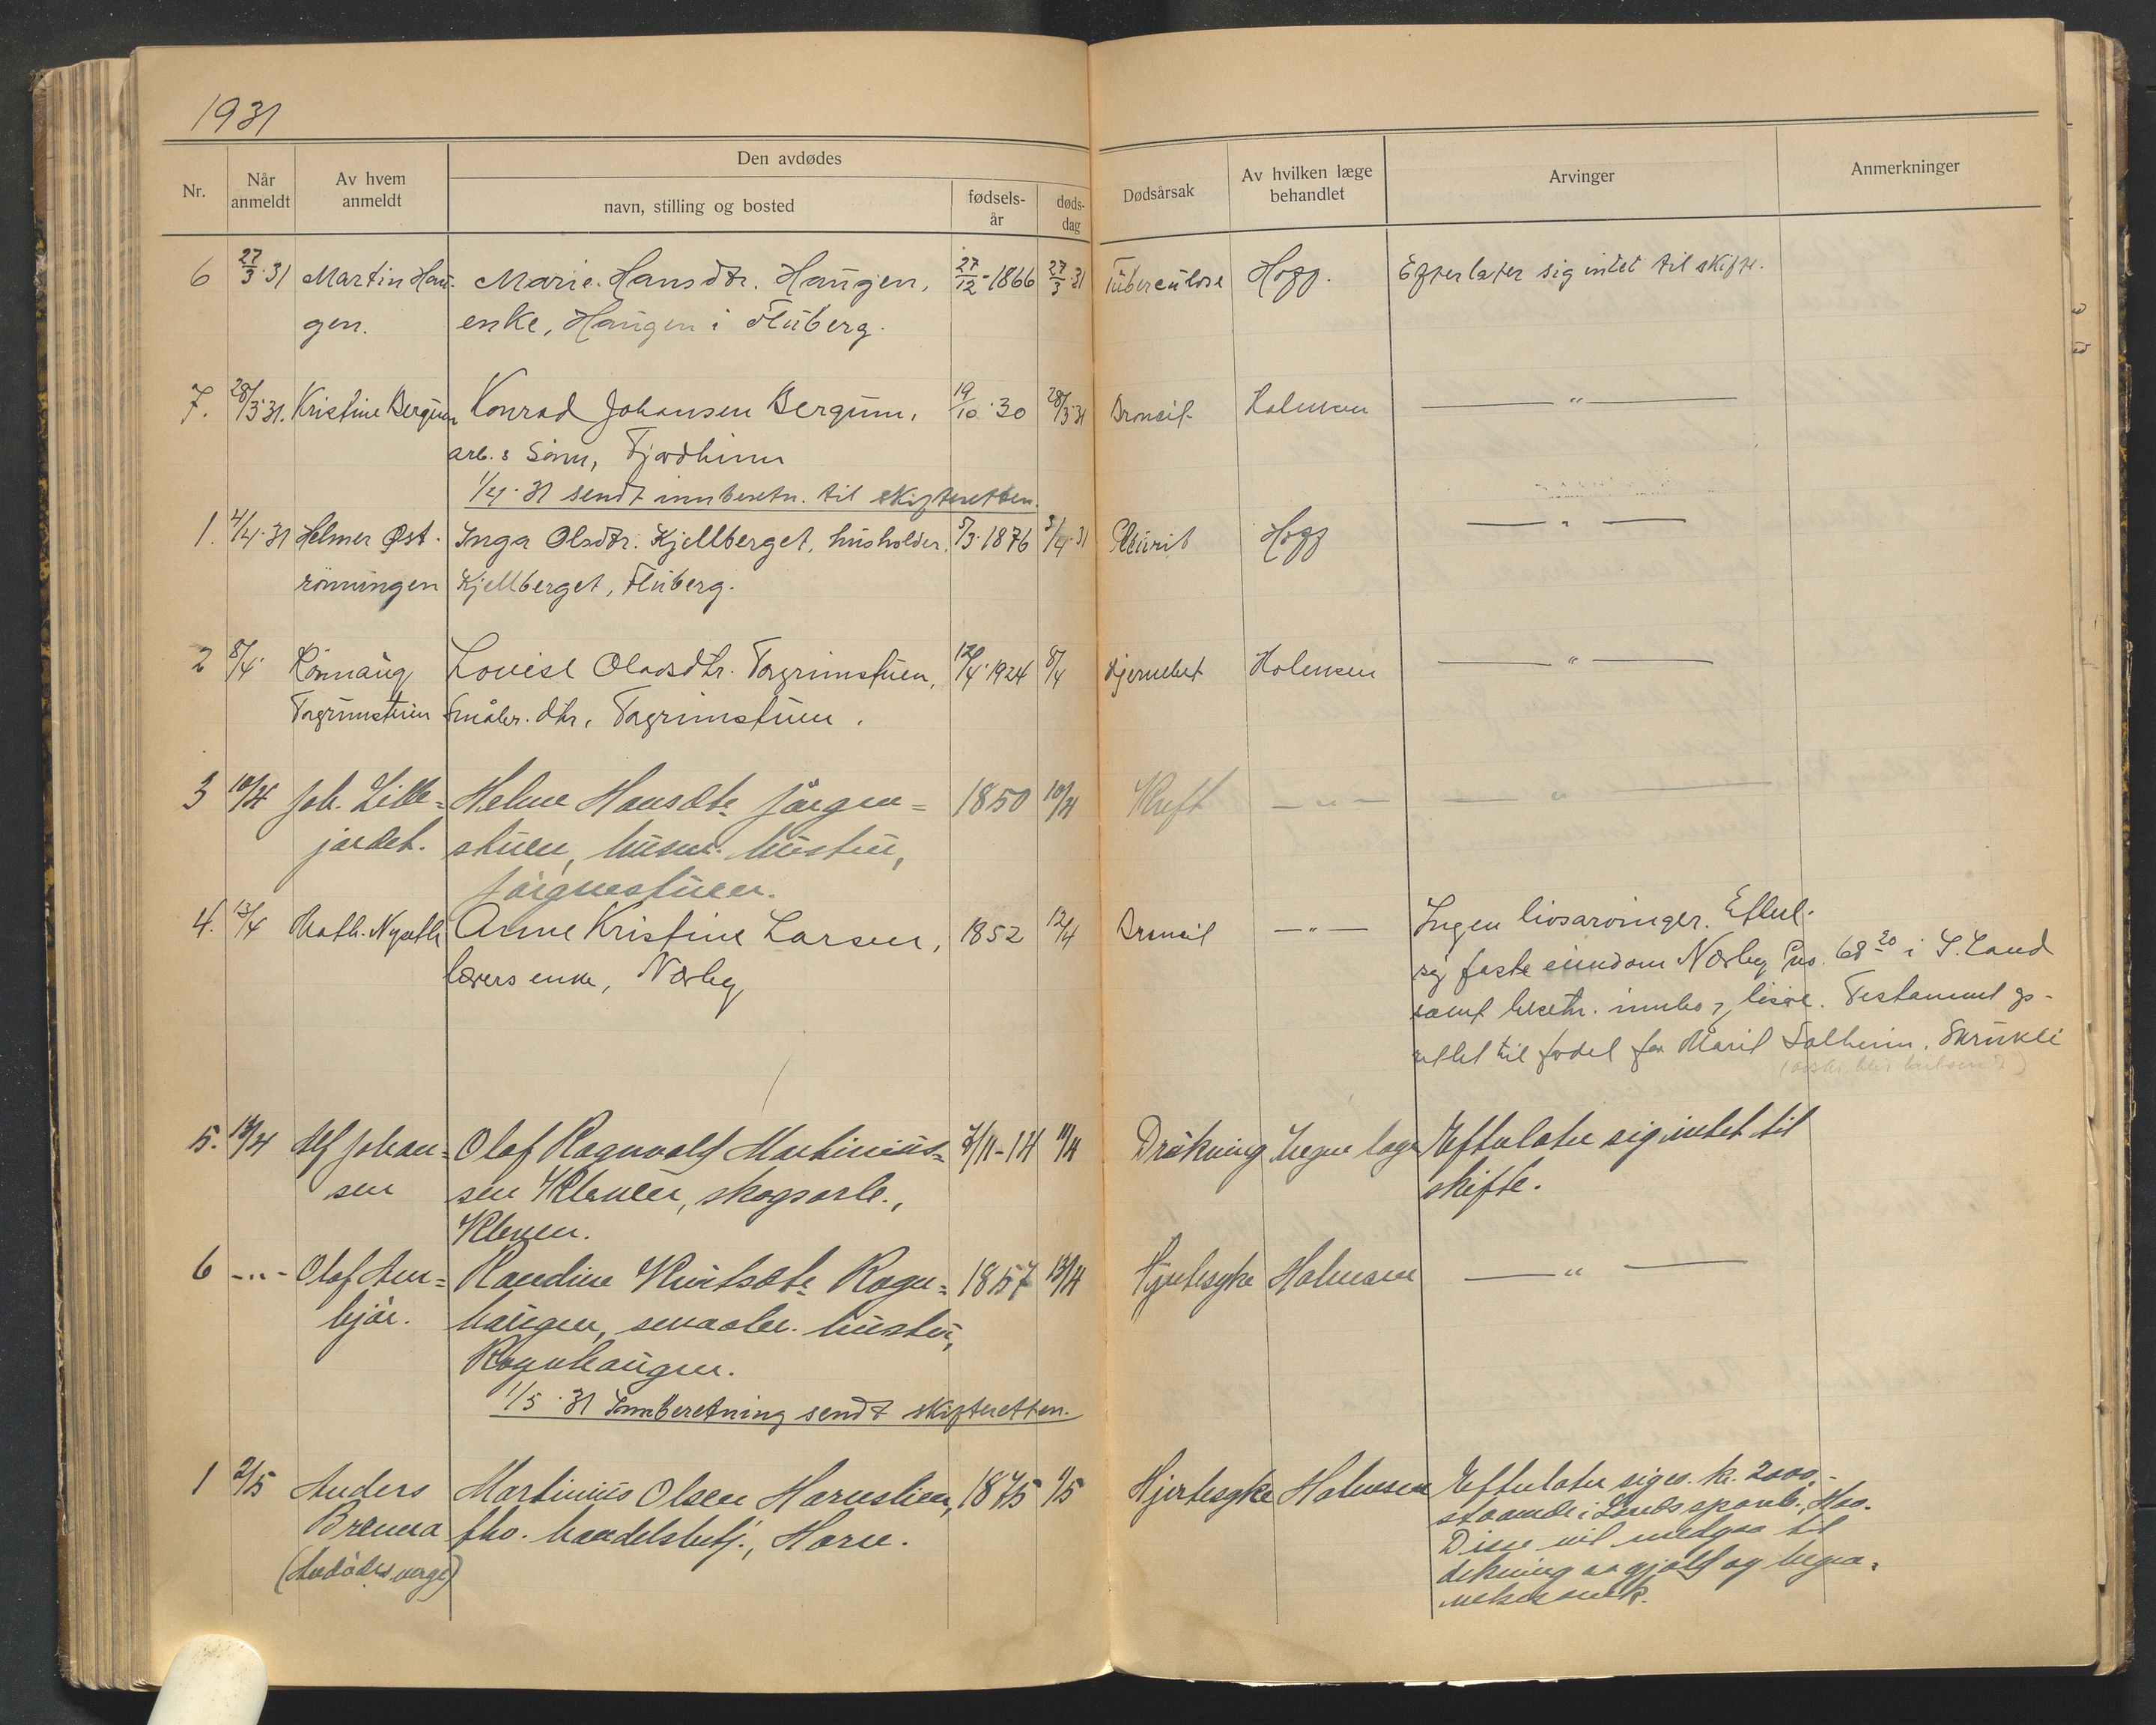 1931
Nr.
Når anmeldt
Av hvem anmeldt
Den avdødes
navn, stilling og bosted
fødsels-år
døds-dag
Dødsårsak
Av hvilken læge behandlet
Arvinger
Anmerkninger
6 27/3·31 Martin Hau- Marie Hansdtr. Haugen, 27/12-1866 27/3·31 Tuberculose Hogg. Efterlater sig intet til skifte.
gen. enke, Haugen i Fluberg.
7. 28/3 31. Kristine Bergum Konrad Johansen Bergum, 19/10·30 28/3 31 Holmsen —"—
arb.s sønn, Fjordheim
1/4·31 sendt innberetn. til skifteretten.
1. 4/4·31 Helmer Øst- Inga Olsdtr. Kjellberget, husholder, 5/3·1876 3/4·31 Pleurit Hogg —"—
rønningen Kjellberget, Fluberg.
2 8/4· Rønnaug Louise Olavsdtr. Torgrimstuen, 12/4·1924 8/4 Holmsen —"—
Torgrimstuen Småbr. dtr, Torgrimstuen.
3 10/4 Joh. Lille= Helene Hansdtr. Jørgen= 1850 10/4 Kreft —"— —"—
jordet. stuen, husm. hustru,
Jørgenstuen.
4. 13/4 Math. Nyseth Anne Kristine Larsen, 1852 12/4 —"— Ingen livsarvinger. Efterl.
lærers enke, Nørby sig faste eiendom Nørby, gno. 68 20 i S. Land
samt innbo, løsøre. Testament op-
rettet til fordel for Marit Solheim, Skrukli
5. 14/4 Alf Johan= Olaf Ragnvald Martinius= 7/11-14 11/4 Drukning Ingen læge Efterlater sig intet til
sen sen Kleven, skogsarb., skifte.
Kleven.
6 -"- Olaf Aur= Randine Knutsdtr. Rogn= 1857 13/4 Hjertesyke Holmsen —"—
bjør. haugen, smaabr. hustru,
Rognhaugen.
1/5·31 Innberetning sendt skifteretten.
1 2/5 Anders Martinius Olsen Hornslien, 1875 1/5 Hjertesyke Holmsen Efterlater sig ca. kr. 2000,-
Brenna fho. handelsbetj., Horn. staaende i Lands spareb., Hov.
(Avdødes verge) Disse vil medgaa til
dekning av gjæld og begra-
velsesomk.